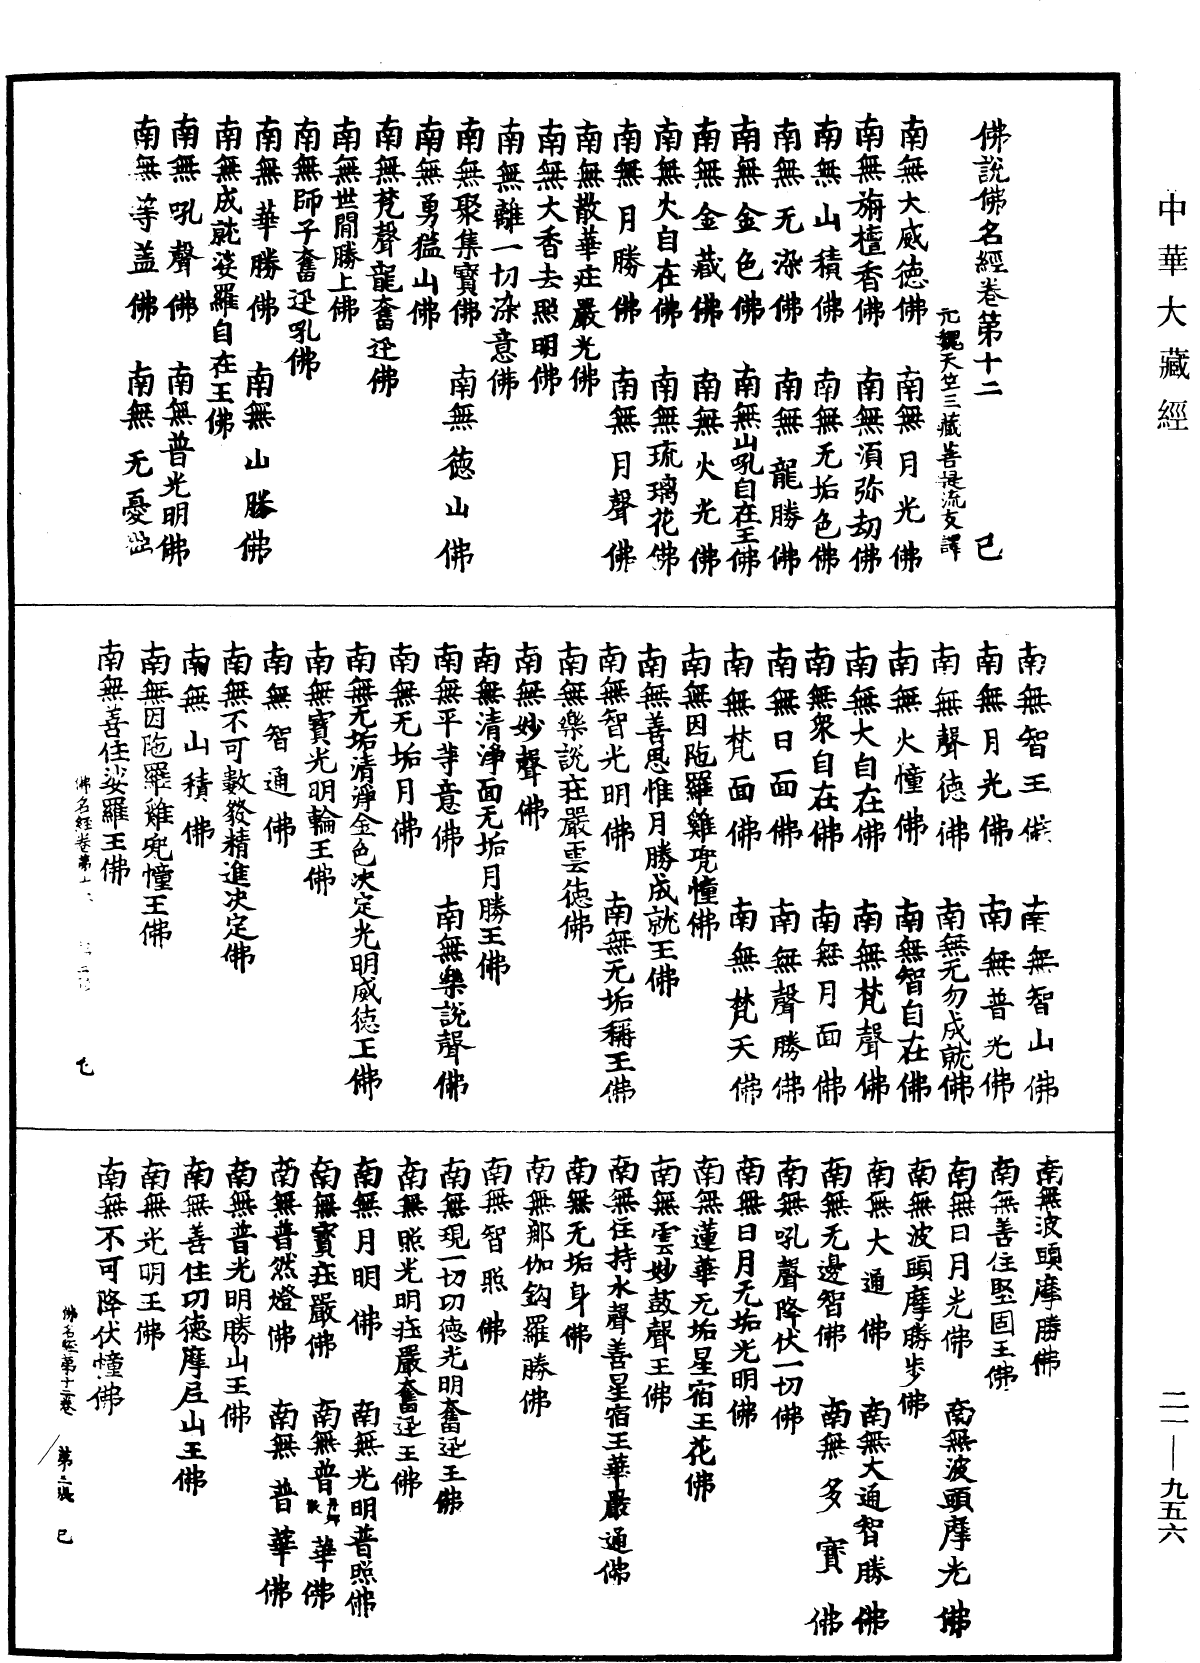 中華大藏經
佛說佛名經卷第十二 巳
元魏天竺三藏菩提流支譯
南無大威德佛 南無月光佛
南無旃檀香佛 南無須弥劫佛
南無山積佛 南無无垢色佛
南無无染佛 南無龍勝佛
南無金色佛 南無山吼自在王佛
南無金藏佛 南無火光佛
南無火自在佛 南無琉璃花佛
南無月勝佛 南無月聲佛
南無散華莊嚴光佛
南無大香去照明佛
南無離一切染意佛
南無聚集寶佛 南無德山佛
南無勇猛山佛
南無梵聲龍奮迅佛
南無世間勝上佛
南無師子奮迅吼佛
南無華勝佛 南無山勝佛
南無成就娑羅自在王佛
南無吼聲佛 南無普光明佛
南無等盖佛 南無无憂佛
南無智王佛 南無智山佛
南無月光佛 南無普光佛
南無聲德佛 南無无勿成就佛
南無火幢佛 南無智自在佛
南無大自在佛 南無梵聲佛
南無衆自在佛 南無月面佛
南無日面佛 南無聲勝佛
南無梵面佛 南無梵天佛
南無因陁羅雞兜幢佛
南無善思惟月勝成就王佛
南無智光明佛 南無无垢稱王佛
南無樂說莊嚴雲德佛
南無妙聲佛
南無清淨面无垢月勝王佛
南無平等意佛 南無樂說聲佛
南無无垢月佛
南無无垢清淨金色决定光明威德王佛
南無寶光明輪王佛
南無智通佛
南無不可數發精進决定佛
南無山積佛
南無因陁羅雞兜幢王佛
南無善住娑羅王佛
佛名經卷第十
南無波頭摩勝佛
南無善住堅固王佛
南無日月光佛 南無波頭摩光佛
南無波頭摩勝步佛
南無大通佛 南無大通智勝佛
南無无邊智佛 南無多寶佛
南無吼聲降伏一切佛
南無日月无垢光明佛
南無蓮華无垢星宿王花佛
南無雲妙鼓聲王佛
南無住持水聲善星宿王華嚴通佛
南無无垢身佛
南無那伽鈎羅勝佛
南無智照佛
南無現一切功德光明奮迅王佛
南無照光明莊嚴奮迅王佛
南無月明佛 南無光明普照佛
南無寶莊嚴佛 南無普華佛
南無普然燈佛 南無普華佛
南無普光明勝山王佛
南無善住功德摩尼山王佛
南無光明王佛
南無不可降伏幢佛
佛名經第十二卷 第二張 巳
二一—九五六